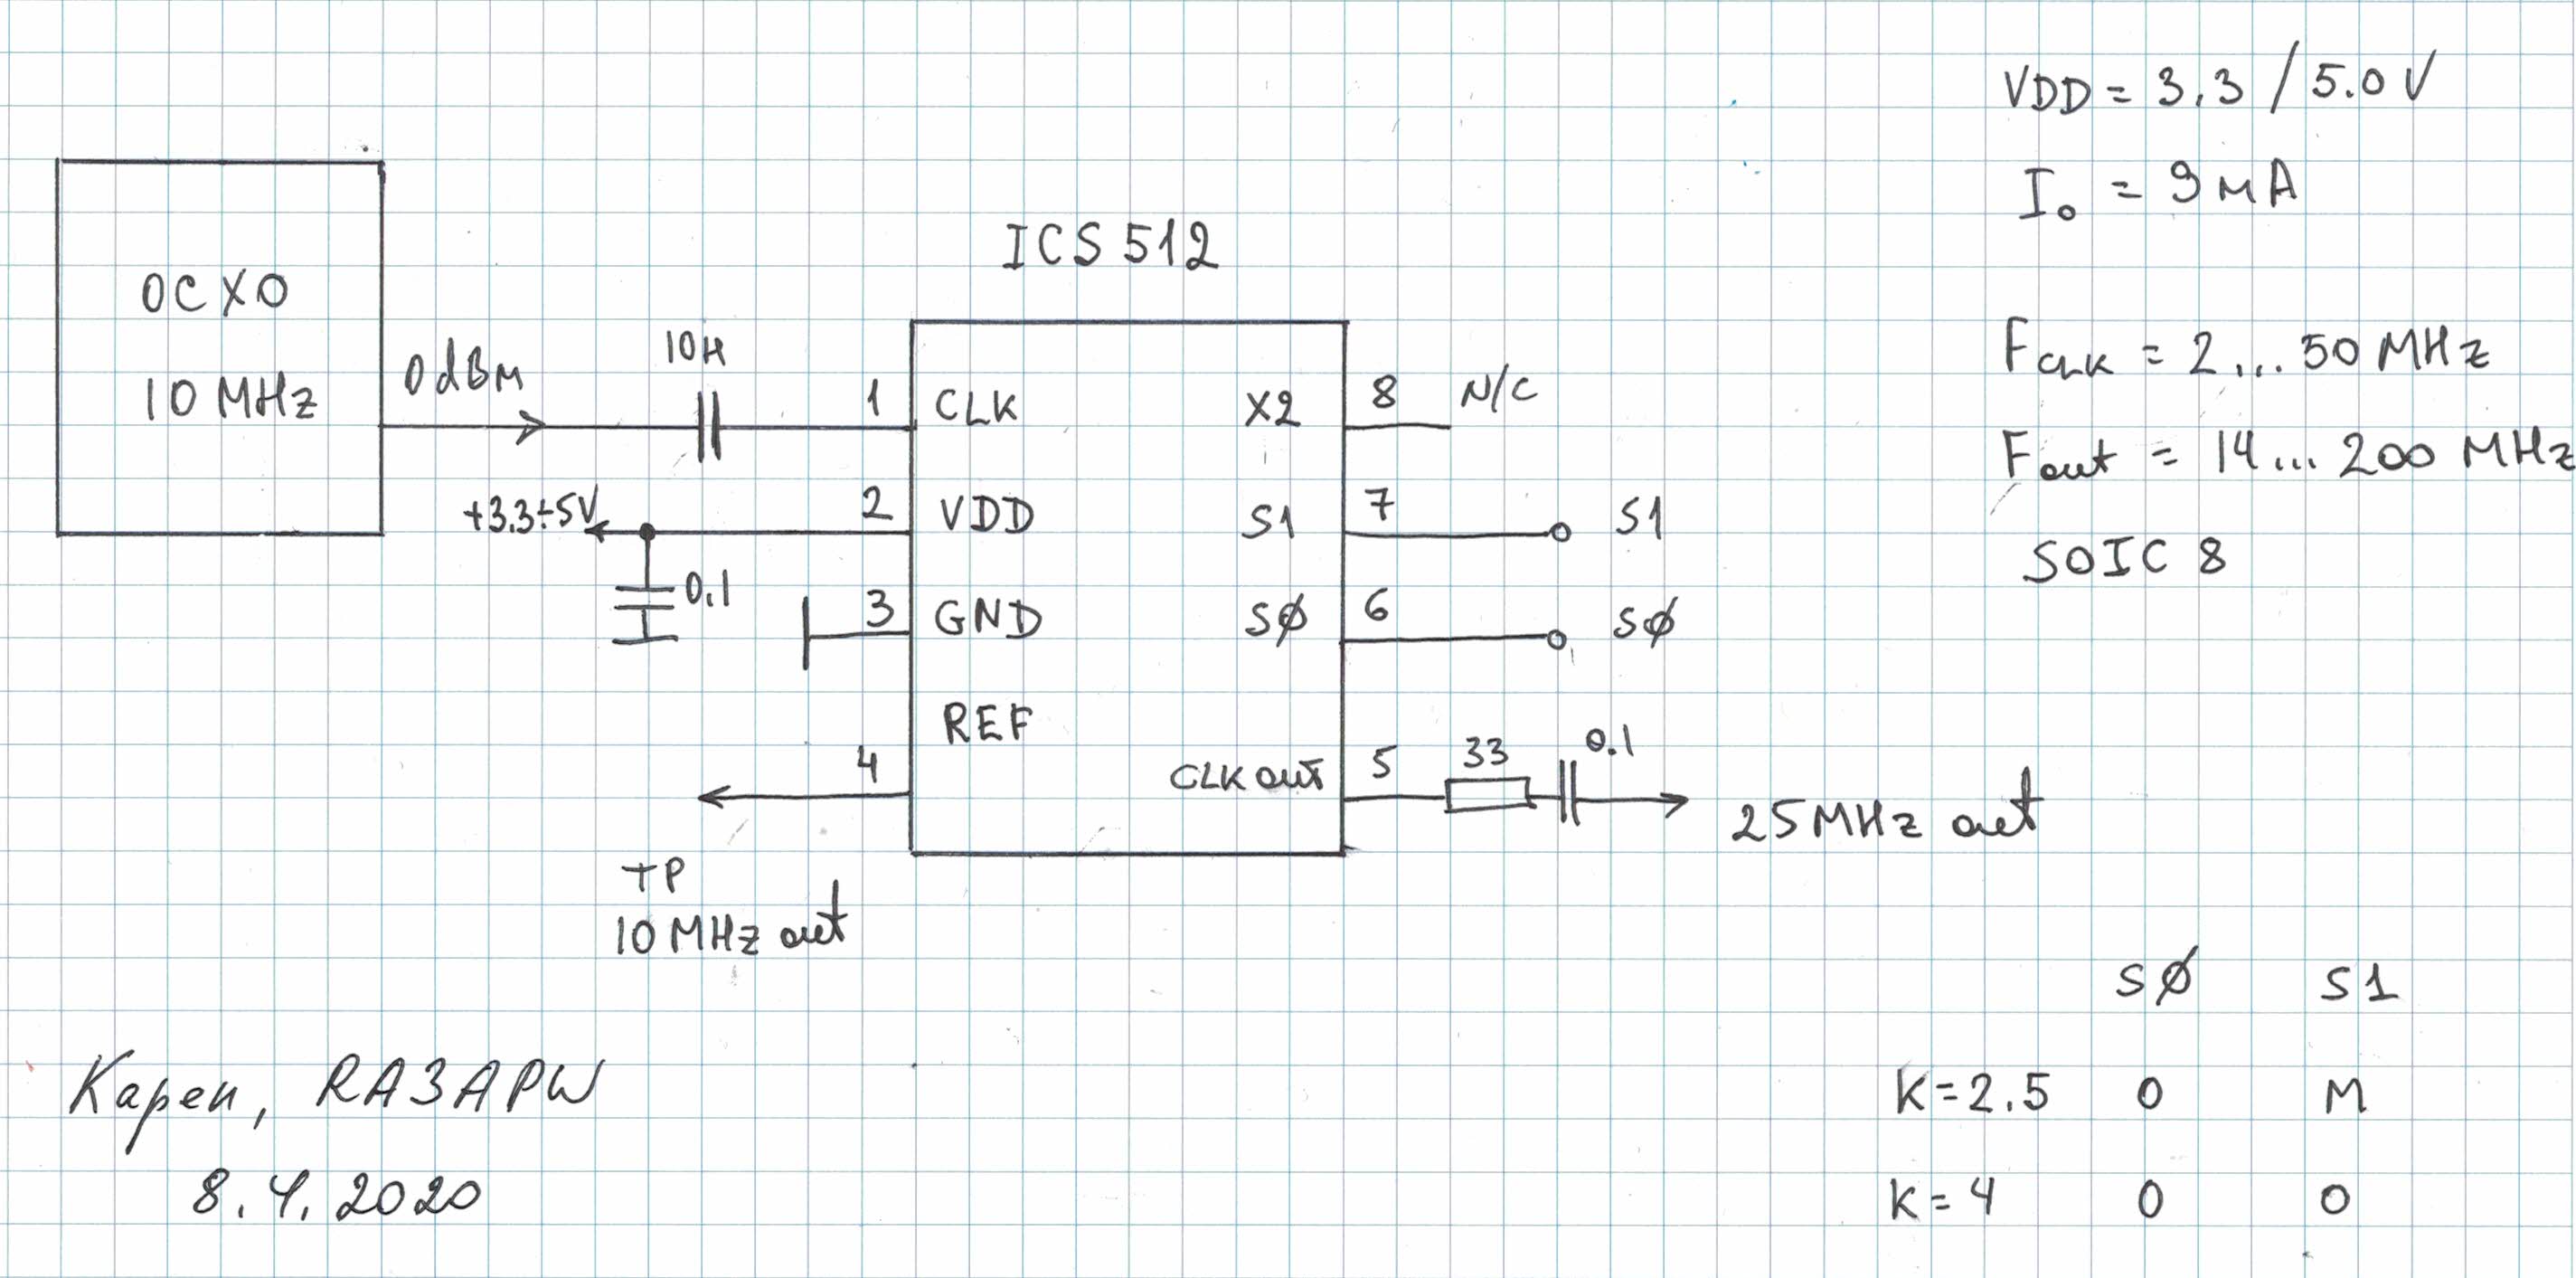 VDD = 3.3 / 5.0 V
I₀ = 9 мА
FCLK = 2... 50 MHz
Fout = 14... 200 MHz
SOIC 8
ICS 512
OCXO
10 MHz
0 dBм
10н
1
CLK
X2
8
N/C
+3.3÷5V
2
VDD
S1
7
S1
0.1
3
GND
SØ
6
SØ
REF
4
CLK out
5
33
0.1
25 MHz out
TP
10 MHz out
SØ S1
K=2.5 0 M
K=4 0 0
Карен, RA3APW
8.4.2020